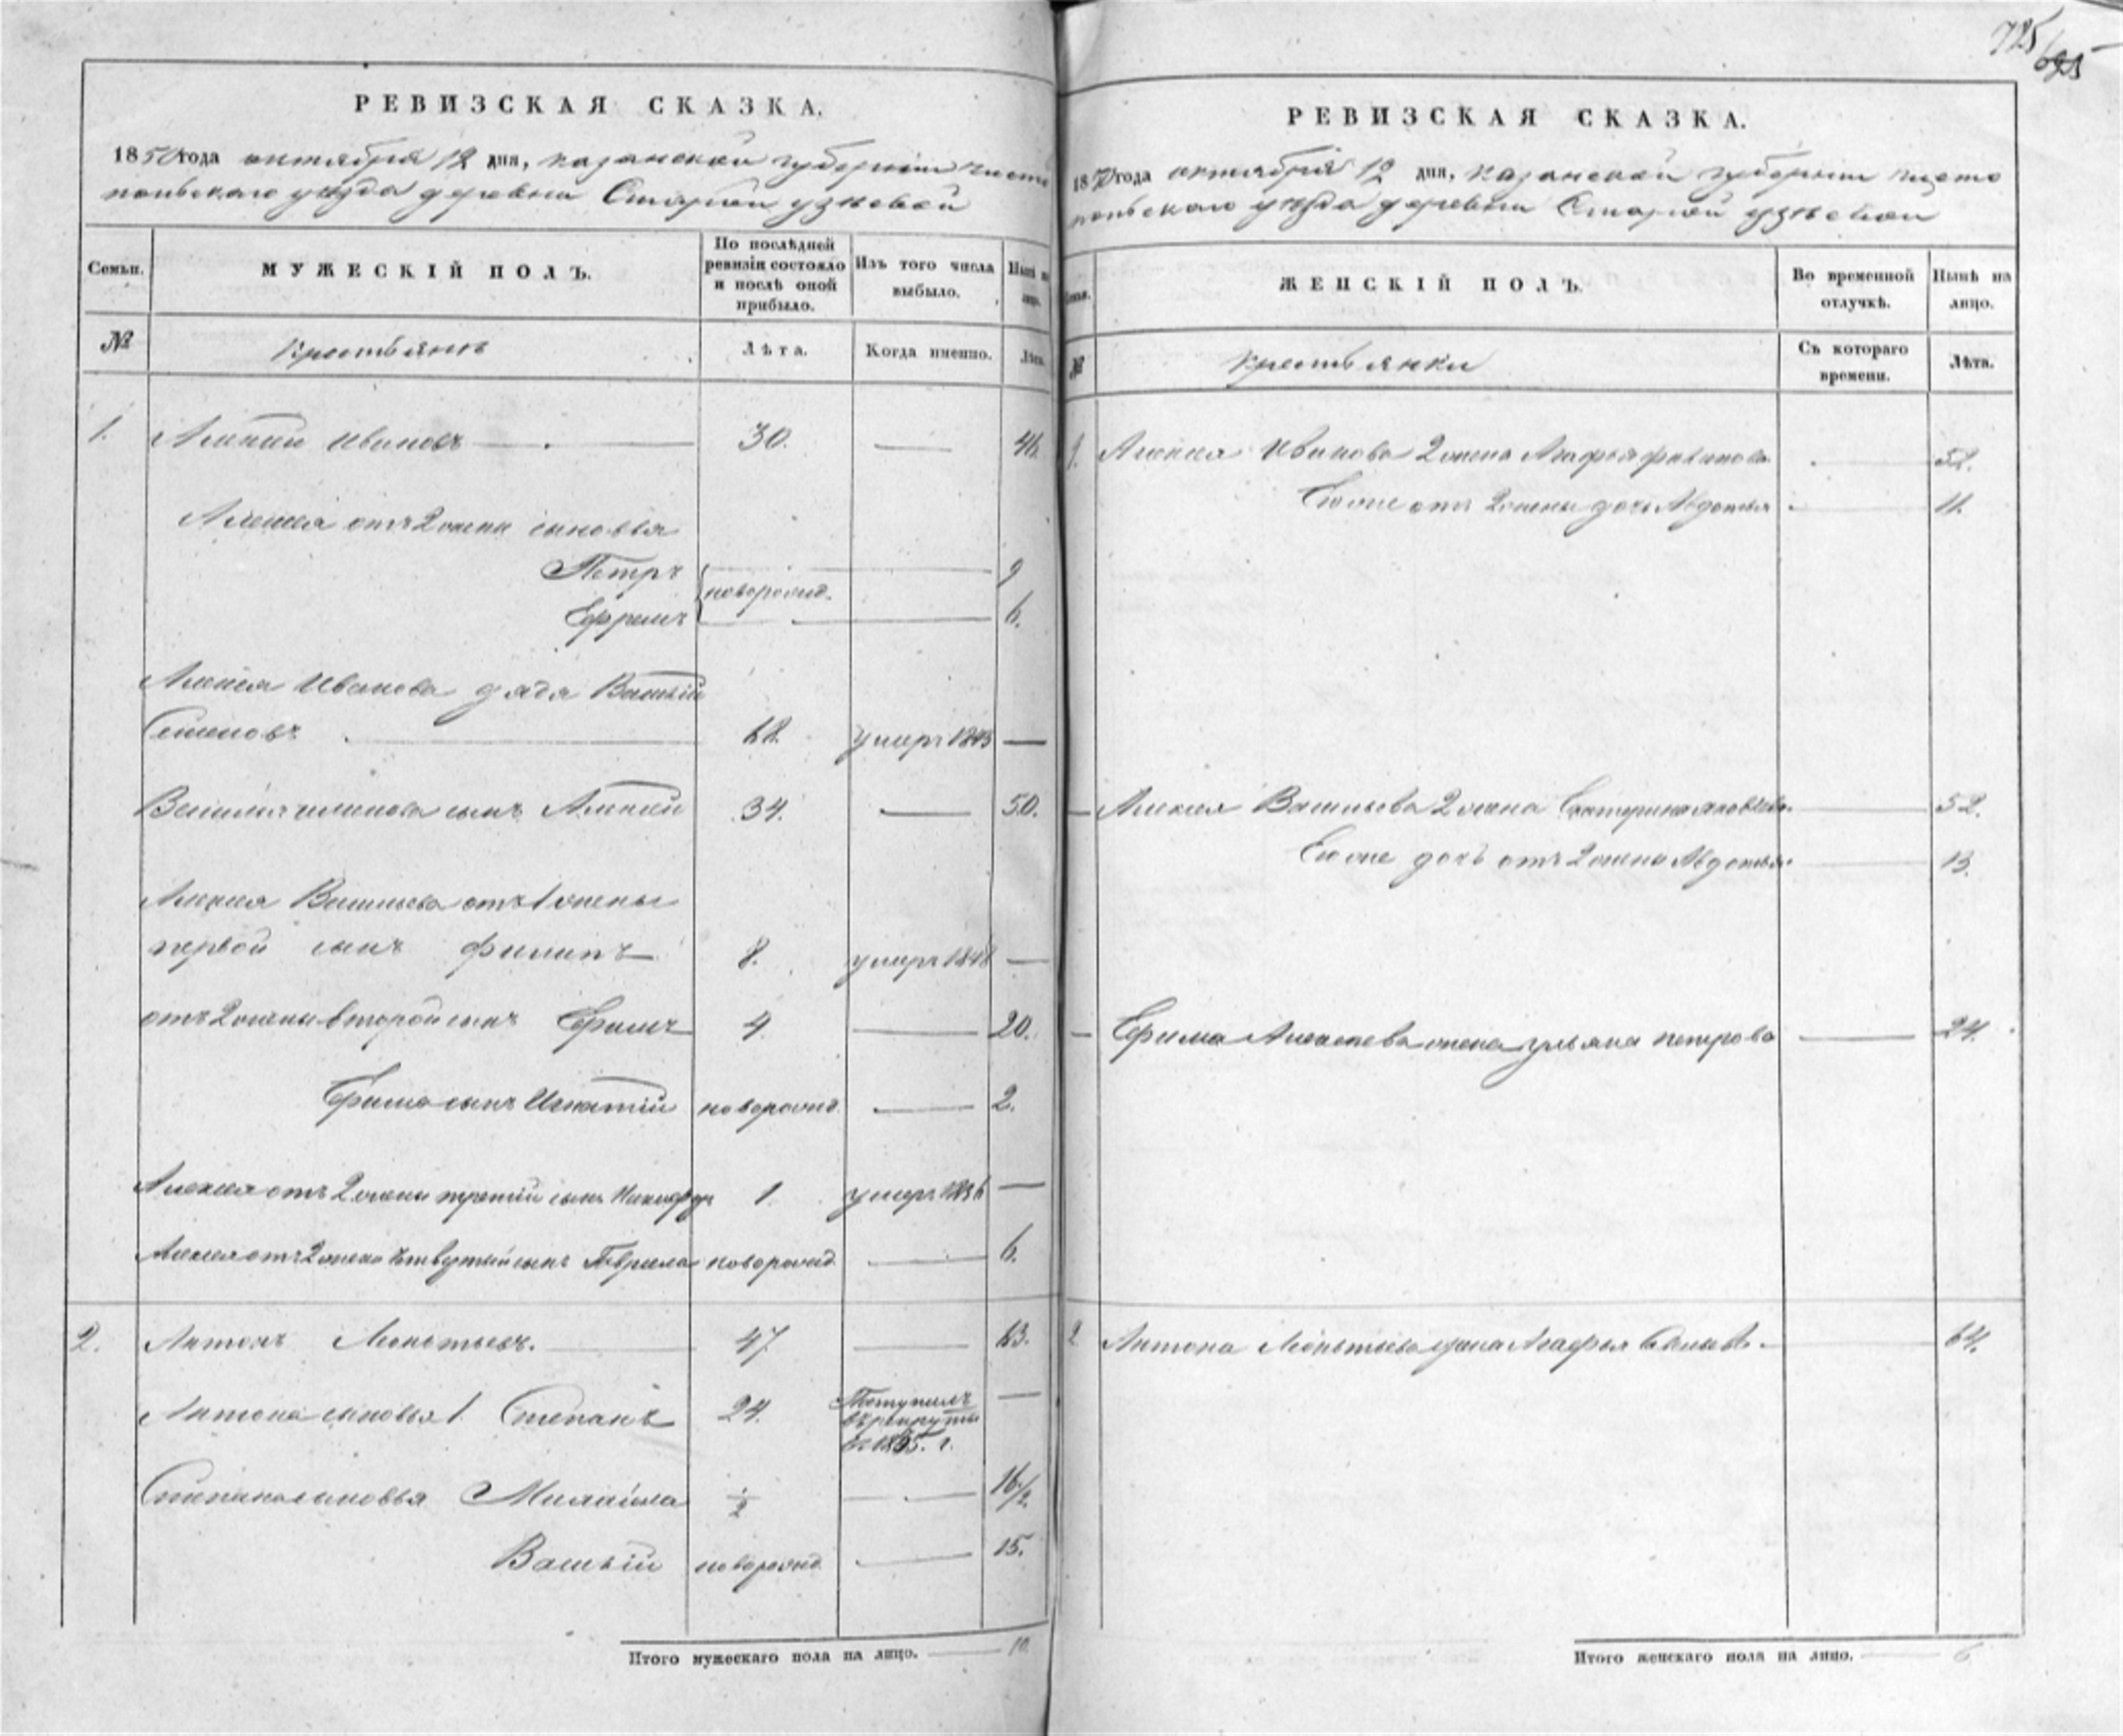 725
РЕВИЗСКАЯ СКАЗКА.
1850 года октября 12 дня, казанской губернии чисто
польскаго уѣзда деревни Старой узѣевой
Семьи. МУЖЕСКІЙ ПОЛЪ. По послѣдней ревизіи состояло и послѣ оной прибыло. Изъ того числа выбыло. Нынѣ на лицо.
№ Крестьянъ Лѣта. Когда именно. Лѣта.
1. Алексѣй Ивановъ 30. 46.
Алексѣя отъ 2 жены сыновья
Петръ новорожд. 9
Ефремъ 6.
Алексѣя Иванова дядя Василій
Семеновъ 68. умеръ 1843
Василія семенова сынъ Алексѣй 34. 50.
Алексѣя Васильева отъ 1 жены
первой сынъ Филипъ 8. умеръ 1848
отъ 2 жены второй сынъ Ефимъ 4. 20.
Ефима сынъ Игнатій новорожд. 2.
Алексѣя отъ 2 жены третій сынъ Никифоръ 1. умеръ 1836
Алексѣя отъ 2 жены четвертый сынъ Гаврила новорожд. 6.
2. Антонъ Леонтьевъ. 47. 63.
Антона сыновья 1. Степанъ 24. Поступилъ
въ рекруты
въ 1835. г.
Степана сыновья Михайла 1/2 16 1/2.
Василій новорожд. 15.
Итого мужескаго пола на лицо. 10.
РЕВИЗСКАЯ СКАЗКА.
1850 года октября 12 дня, казанской губернии чисто
польскаго уѣзда деревни Старой узѣевой
Семьи. ЖЕНСКІЙ ПОЛЪ. Во временной отлучкѣ. Нынѣ на лицо.
№ Крестьянки Съ котораго времени. Лѣта.
1. Алексѣя Иванова 2 жена Агафья 52.
Его же отъ 2 жены дочь Авдотья 11.
Алексѣя Васильева 2 жена Екатерина яковлева 52.
Его же дочь отъ 2 жены Авдотья 13.
Ефима Алексѣева жена ульяна петрова 24.
2. Антона Леонтьева жена Агафья 64.
Итого женскаго пола на лицо. 6